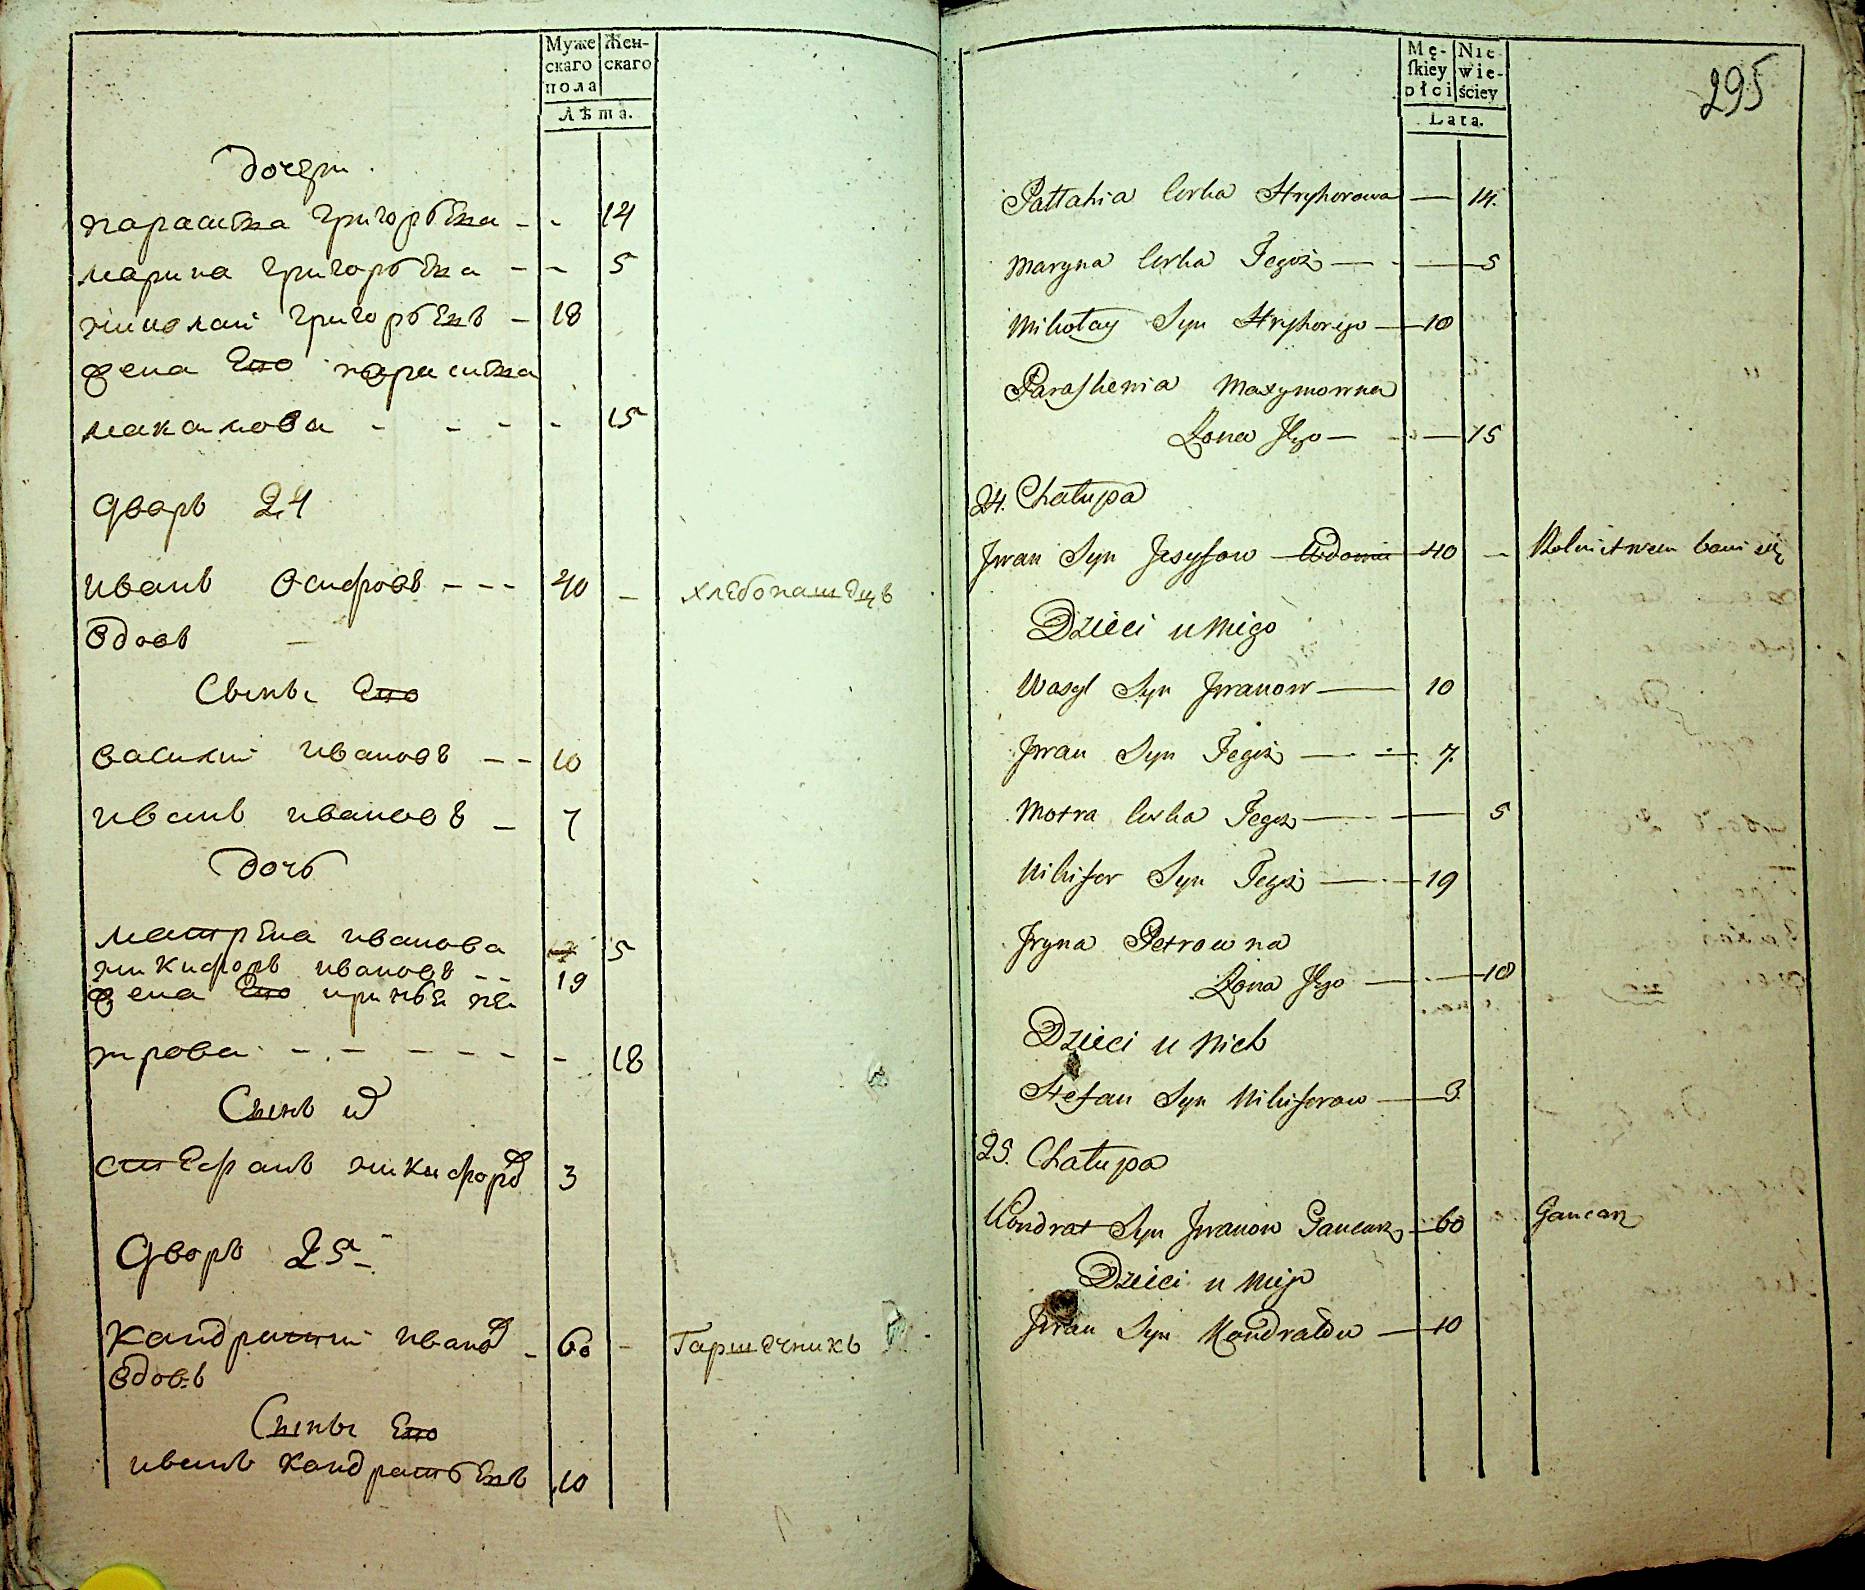 Муже
скаго
пола
Жен-
скаго
Лѣта.
дочери
параскева григорьева - - 14
марина григорьева - - 5
николаи григорьевъ - 18
жена Его параскева
макамова - - - - 15
дворъ 24
иванъ осифовъ - - - 40 - хлебопашецъ
вдовъ
Сыны Его
василии ивановъ - - 10
иванъ ивановъ - 7
дочь
матрена иванова 5
никифоръ ивановъ - - 19
жена Его ирина пе
трова - - - - - - 18
Сынъ их
стефанъ никифоров 3
дворъ 25
кандратии иванов - 60 - Гаршечникъ
вдовъ
Сыны Его
иванъ кандратьевъ 10
Mę-
ſkiey
płci
Nie-
wie-
ściey
Lata.
295
Pałtahia Corka Hryhorowa — 14.
Maryna Corka Tegoż — 5
Mikołay Syn Hryhorego — 18
Paraskewia Maxymowna
Żona Jego — 15
24. Chałupa
Jwan Syn Jesyfow Wdowiec 40 - Rolnictwem bawi się
Dzieci u Niego
Wasyl Syn Jwanow — 10
Jwan Syn Tegoż — 7.
Motra Corka Tegoż — 5
Nikifor Syn Tegoż — 19
Jryna Petrowna
Żona Jego — 18
Dzieci u Nich
Stefan Syn Nikiforow — 3.
25. Chałupa
Kondrat Syn Jwanow Gancarz — 60 Gancarz
Dzieci u Niego
Jwan Syn Kondratow — 10